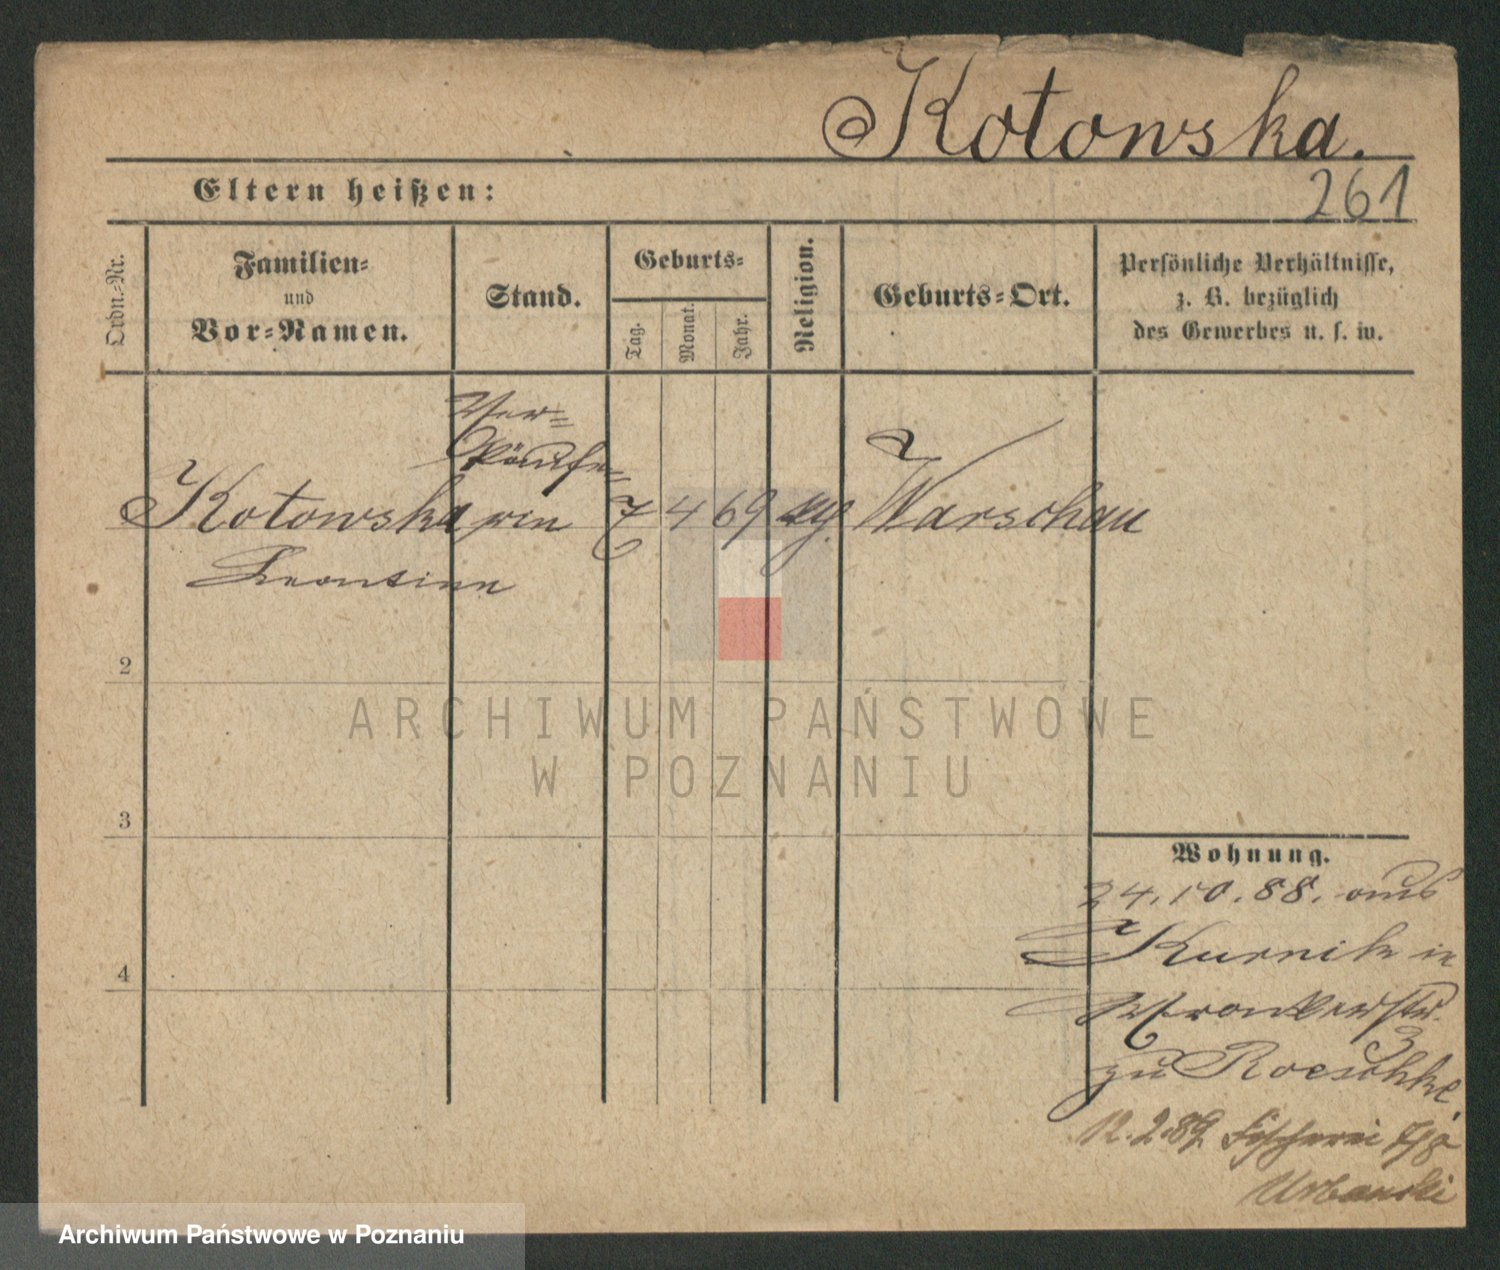 Kotowska.
261
Eltern heißen:
Ordn.-Nr.
Familien-
und
Vor-Namen.
Stand.
Geburts-
Tag.
Monat.
Jahr.
Religion.
Geburts-Ort.
Persönliche Verhältnisse,
z. B. bezüglich
des Gewerbes u. s. w.
Ver-
käufe-
Kotowska rin 7 4 69 Warschau
Leontine
2
3
4
ARCHIWUM PAŃSTWOWE
W POZNANIU
Wohnung.
24.10.88. aus
Kurnik in
Wronkerstr.
3
zu Roeschke
12.2.89 Fischerei
Urbanski
Archiwum Państwowe w Poznaniu